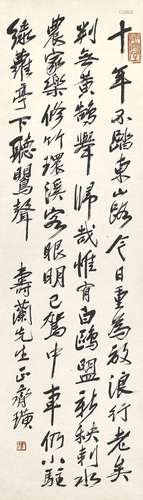 十年不踏東山路今日重為放浪行老矣
判無黃鵠舉歸哉惟有白鷗盟新秧刺水
農家樂修竹環溪客眼明已駕巾車仍小駐
綠蘿亭下聽鶯聲 壽蘭先生正齊璜